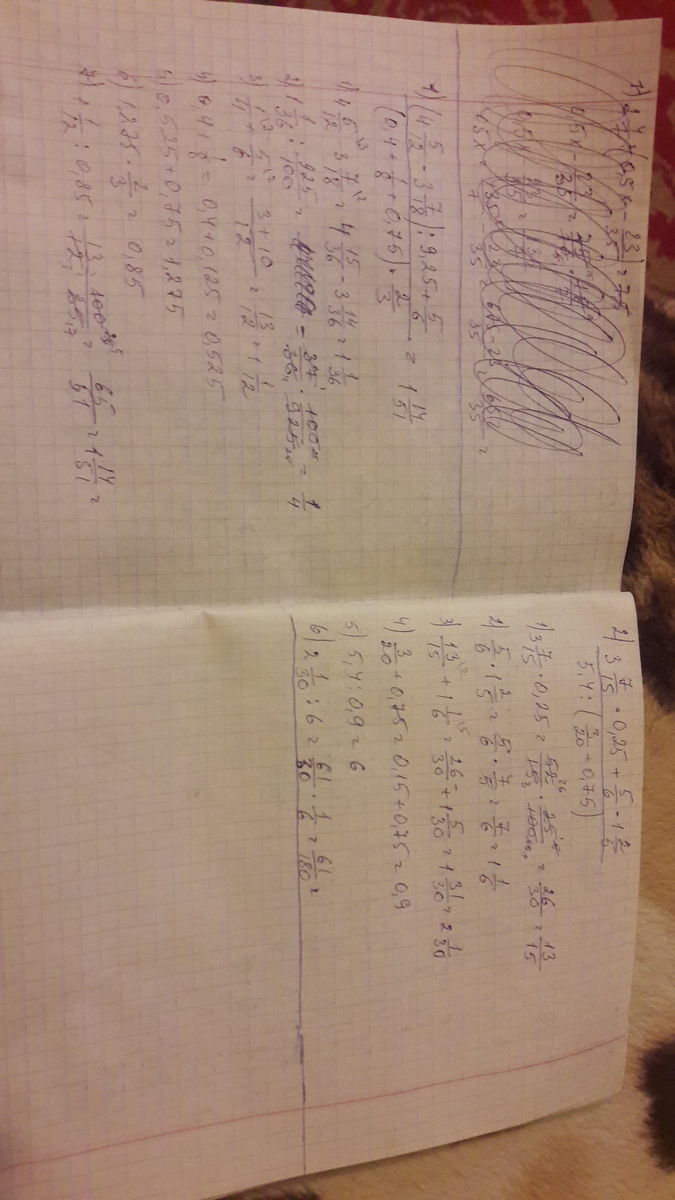 1) (4 5/12 - 3 7/18) : 9,25 + 5/6
(0,4 + 1/8 + 0,75) · 2/3 = 1 14/51
1) 4 5/12 - 3 7/18 = 4 15/36 - 3 14/36 = 1 1/36
2) 1 1/36 : 925/100 = 37/36 · 100/925 = 1/4
3) 1/4 + 5/6 = 3+10/12 = 13/12 = 1 1/12
4) 0,4 + 1/8 = 0,4 + 0,125 = 0,525
5) 0,525 + 0,75 = 1,275
6) 1,275 · 2/3 = 0,85
7) 1 1/12 : 0,85 = 13/12 · 100/85 = 65/51 = 1 14/51 =
2) 3 7/15 · 0,25 + 5/6 · 1 2/5
5,4 : (3/20 + 0,75)
1) 3 7/15 · 0,25 = 52/15 · 25/100 = 26/30 = 13/15
2) 5/6 · 1 2/5 = 5/6 · 7/5 = 7/6 = 1 1/6
3) 13/15 + 1 1/6 = 26/30 + 1 5/30 = 1 31/30 = 2 1/30
4) 3/20 + 0,75 = 0,15 + 0,75 = 0,9
5) 5,4 : 0,9 = 6
6) 2 1/30 : 6 = 61/30 · 1/6 = 61/180 =